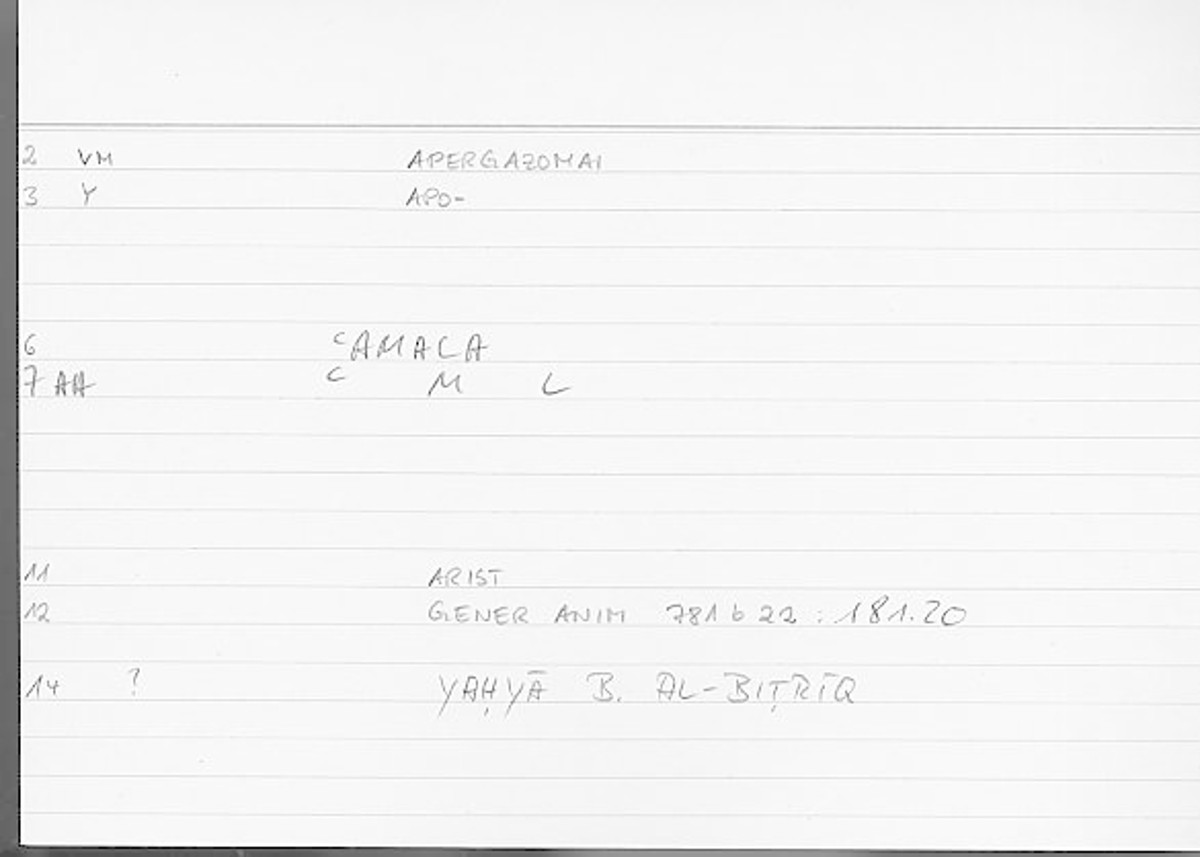 2 VM APERGAZOMAI
3 Y APO-
6 ᶜAMALA
7 AA ᶜ M L
11 ARIST
12 GENER ANIM 781 b 22 : 181.20
14 ? YAḤYĀ B. AL-BIṬRĪQ